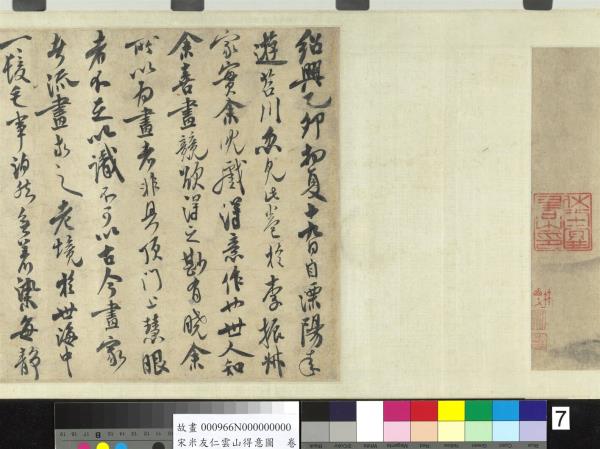 紹興乙卯初夏十九日自溧陽來
遊苕川忽見此卷於李振叔
家實余兒戲得意作也世人知
余喜畫競欲得之尠有曉余
所以為畫者非具頂門上慧眼
者不足以識不可以古今畫家
者流畫求之老境於世海中
一髮毛事泊然無着染每靜
故畫 000966N000000000
宋米友仁雲山得意圖 卷
7